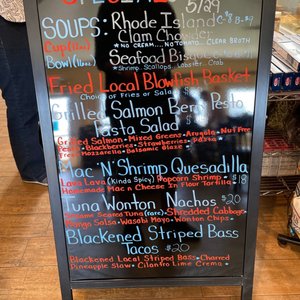 SPECIALS 5/29
SOUPS: Rhode Island
Clam Chowder
Cup (12oz)
*NO CREAM... NO TOMATO... CLEAR BROTH
Bowl (16oz) Seafood Bisque
*Shrimp, Scallops, Lobster, Crab
Fried Local Blowfish Basket
Choice of Fries or Salad
Grilled Salmon Berry Pesto
Pasta Salad
Grilled Salmon - Mixed Greens - Arugula - Nut Free
Pesto - Blackberries - Strawberries - Pasta
Fresh Mozzarella - Balsamic Glaze
Mac 'N' Shrimp Quesadilla
Lava Lava (Kinda Spicy) Popcorn Shrimp $18
Homemade Mac n Cheese In Flour Tortilla
Tuna Wonton Nachos $20
Sesame Seared Tuna (rare) - Shredded Cabbage
Mango Salsa - Wasabi Mayo - Wonton Chips
Blackened Striped Bass
Tacos $20
Blackened Local Striped Bass - Charred
Pineapple Slaw - Cilantro Lime Crema